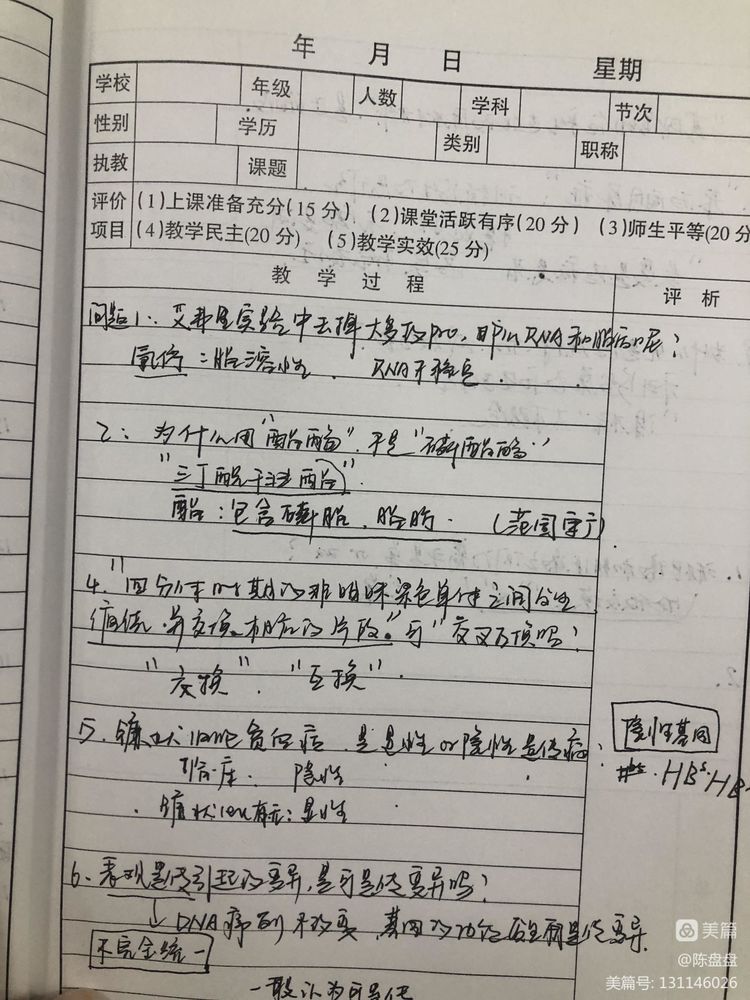 年 月 日 星期
学校 年级 人数 学科 节次
性别 学历 类别 职称
执教 课题
评价 (1)上课准备充分(15分) (2)课堂活跃有序(20分) (3)师生平等(20分
项目 (4)教学民主(20分) (5)教学实效(25分)
教学过程 评析
问题1: 艾弗里实验中去掉大多数pro, RNA和脂质呢?
氯仿:脂溶性. RNA不稳定.
2: 为什么用"酯酶",不是"磷酯酶"
"三丁酸甘油酯"
酯:包含磷脂、脂肪. (范围宽广)
4. "四分体时期的非姐妹染色单体之间发生
缠绕,并交换相应的片段."与"交叉互换吗?
"交换". "互换".
5. 镰状细胞贫血病,是显性or隐性遗传病?
临床. 隐性
镰状 有无:显性
隐性基因
HbS. HBS. HB
6. 表观遗传引起的变异,是可遗传变异吗?
↓ DNA序列不改变,基因的功能 遗传变异.
不完全统一
一般认为可遗传
美篇
@陈盘盘
美篇号: 131146026